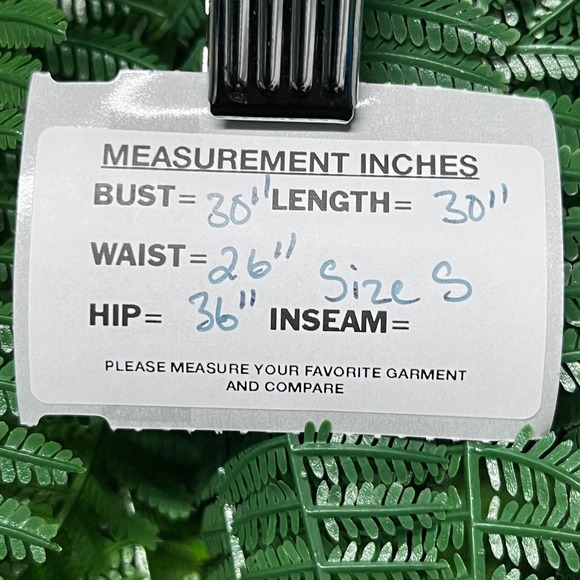 MEASUREMENT INCHES
BUST= 30" LENGTH= 30"
WAIST= 26"
Size S
HIP= 36" INSEAM=
PLEASE MEASURE YOUR FAVORITE GARMENT
AND COMPARE